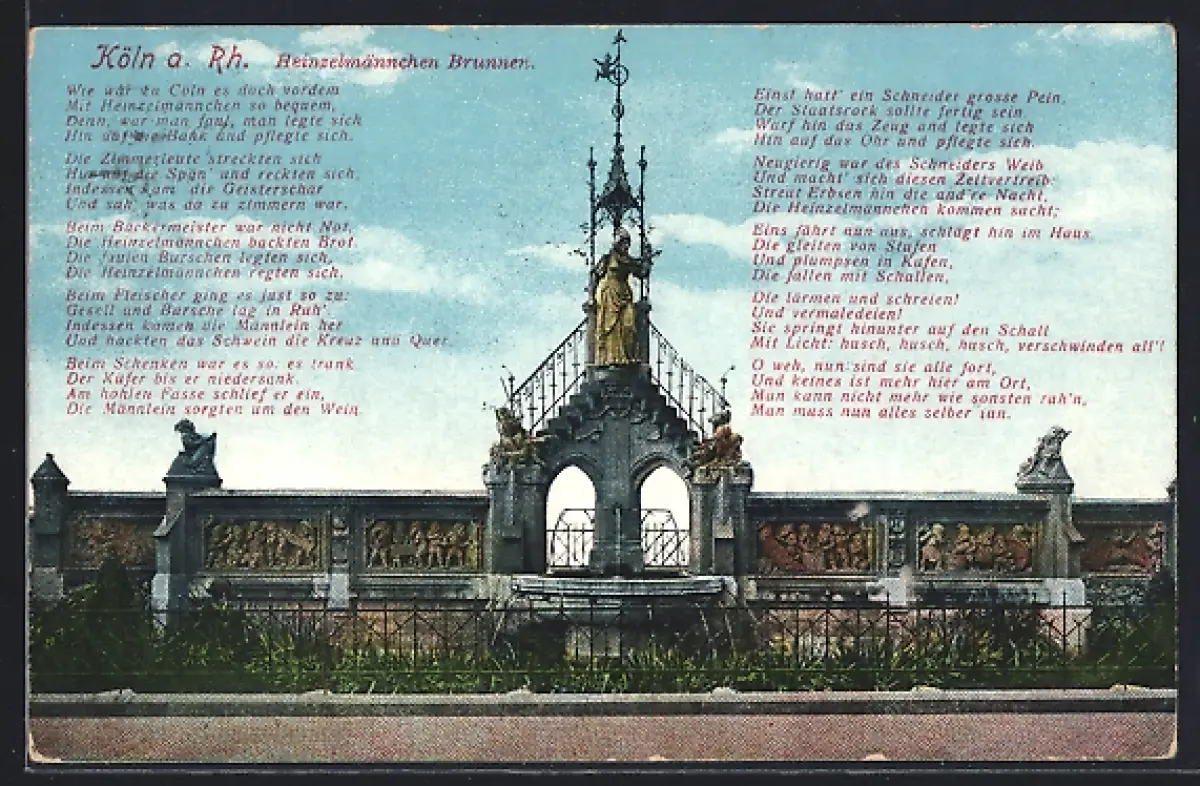 Köln a. Rh. Heinzelmännchen Brunnen.
Wie war zu Cöln es doch vordem
Mit Heinzelmännchen so bequem,
Denn, war man faul, man legte sich
Hin auf die Bank und pflegte sich.
Die Zimmerleute streckten sich
Hin auf die Spän' und reckten sich,
Indessen kam die Geisterschar
Und sah, was da zu zimmern war.
Beim Bäckermeister war nicht Not,
Die Heinzelmännchen backten Brot.
Die faulen Burschen legten sich,
Die Heinzelmännchen regten sich.
Beim Fleischer ging es just so zu:
Gesell und Bursche lag in Ruh'.
Indessen kamen die Männlein her
Und hackten das Schwein die Kreuz und Quer.
Beim Schenken war es so: es trank
Der Küfer bis er niedersank.
Am hohlen Fasse schlief er ein,
Die Männlein sorgten um den Wein.
Einst hatt' ein Schneider grosse Pein,
Der Staatsrock sollte fertig sein.
Warf hin das Zeug und legte sich
Hin auf das Ohr und pflegte sich.
Neugierig war des Schneiders Weib
Und macht' sich diesen Zeitvertreib:
Streut Erbsen hin die and're Nacht,
Die Heinzelmännchen kommen sacht;
Eins fährt nun aus, schlägt hin im Haus,
Die gleiten von Stufen
Und plumpsen in Kufen,
Die fallen mit Schallen,
Die lärmen und schreien!
Und vermaledeien!
Sie springt hinunter auf den Schall
Mit Licht: husch, husch, husch, verschwinden all'!
O weh, nun sind sie alle fort,
Und keines ist mehr hier am Ort,
Man kann nicht mehr wie sonsten ruh'n,
Man muss nun alles selber tun.